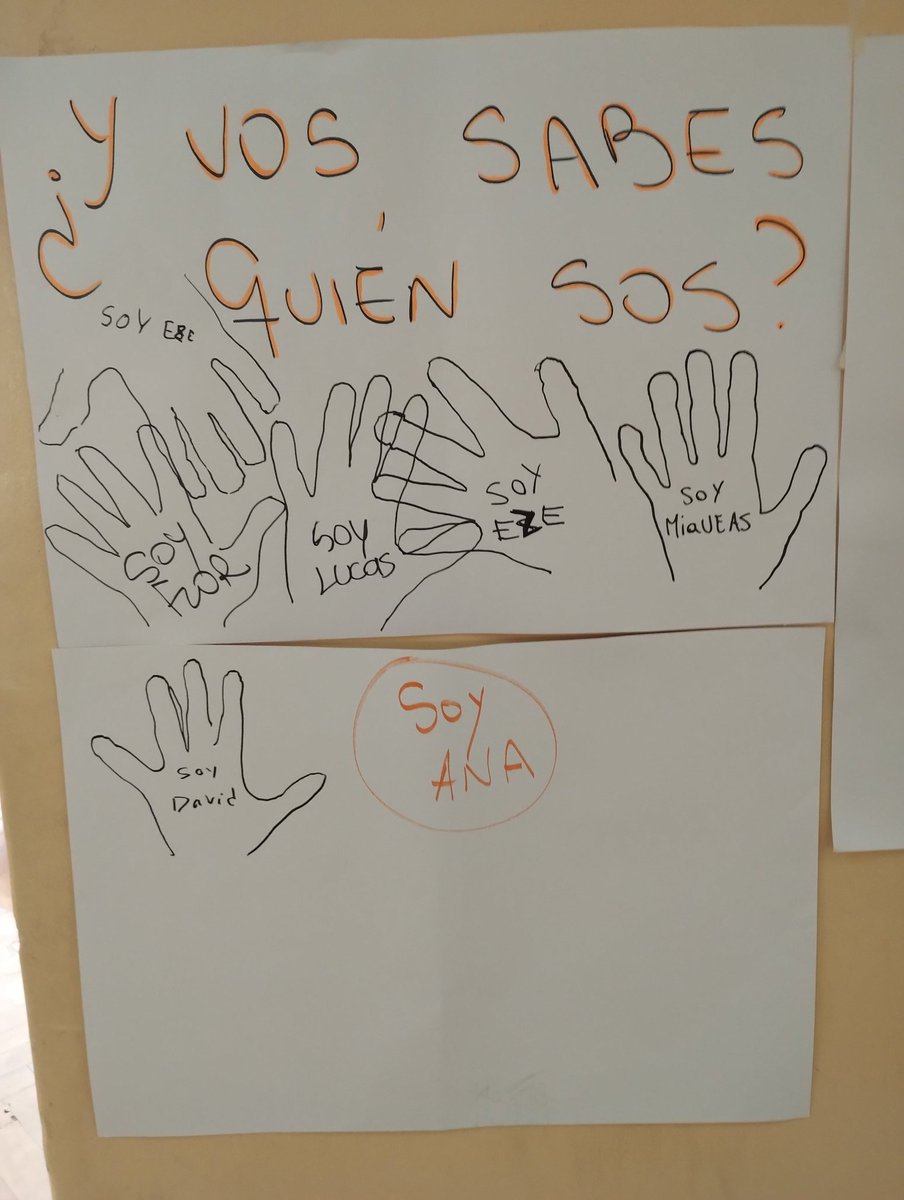 ¿Y VOS SABES
QUIÉN SOS?
SOY EZE
SOY
FLOR
SOY
LUCAS
SOY
EZE
SOY
MiQUEAS
SOY
David
SOY
ANA